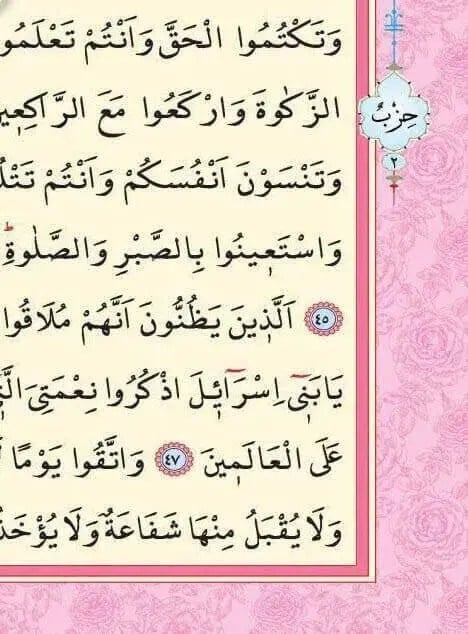 وَتَكْتُمُوا الْحَقَّ وَاَنْتُمْ تَعْلَمُو
الزَّكٰوةَ وَارْكَعُوا مَعَ الرَّاكِع۪ين
وَتَنْسَوْنَ اَنْفُسَكُمْ وَاَنْتُمْ تَتْلُ
وَاسْتَع۪ينُوا بِالصَّبْرِ وَالصَّلٰوةِۜ
٤٥ اَلَّذ۪ينَ يَظُنُّونَ اَنَّهُمْ مُلَاقُوا
يَابَن۪ٓي اِسْرَٓائ۪لَ اذْكُرُوا نِعْمَتِيَ الَّت۪
عَلَى الْعَالَم۪ينَ ٤٧ وَاتَّقُوا يَوْمًا
وَلَا يُقْبَلُ مِنْهَا شَفَاعَةٌ وَلَا يُؤْخَذُ
حِزْبٌ
٢